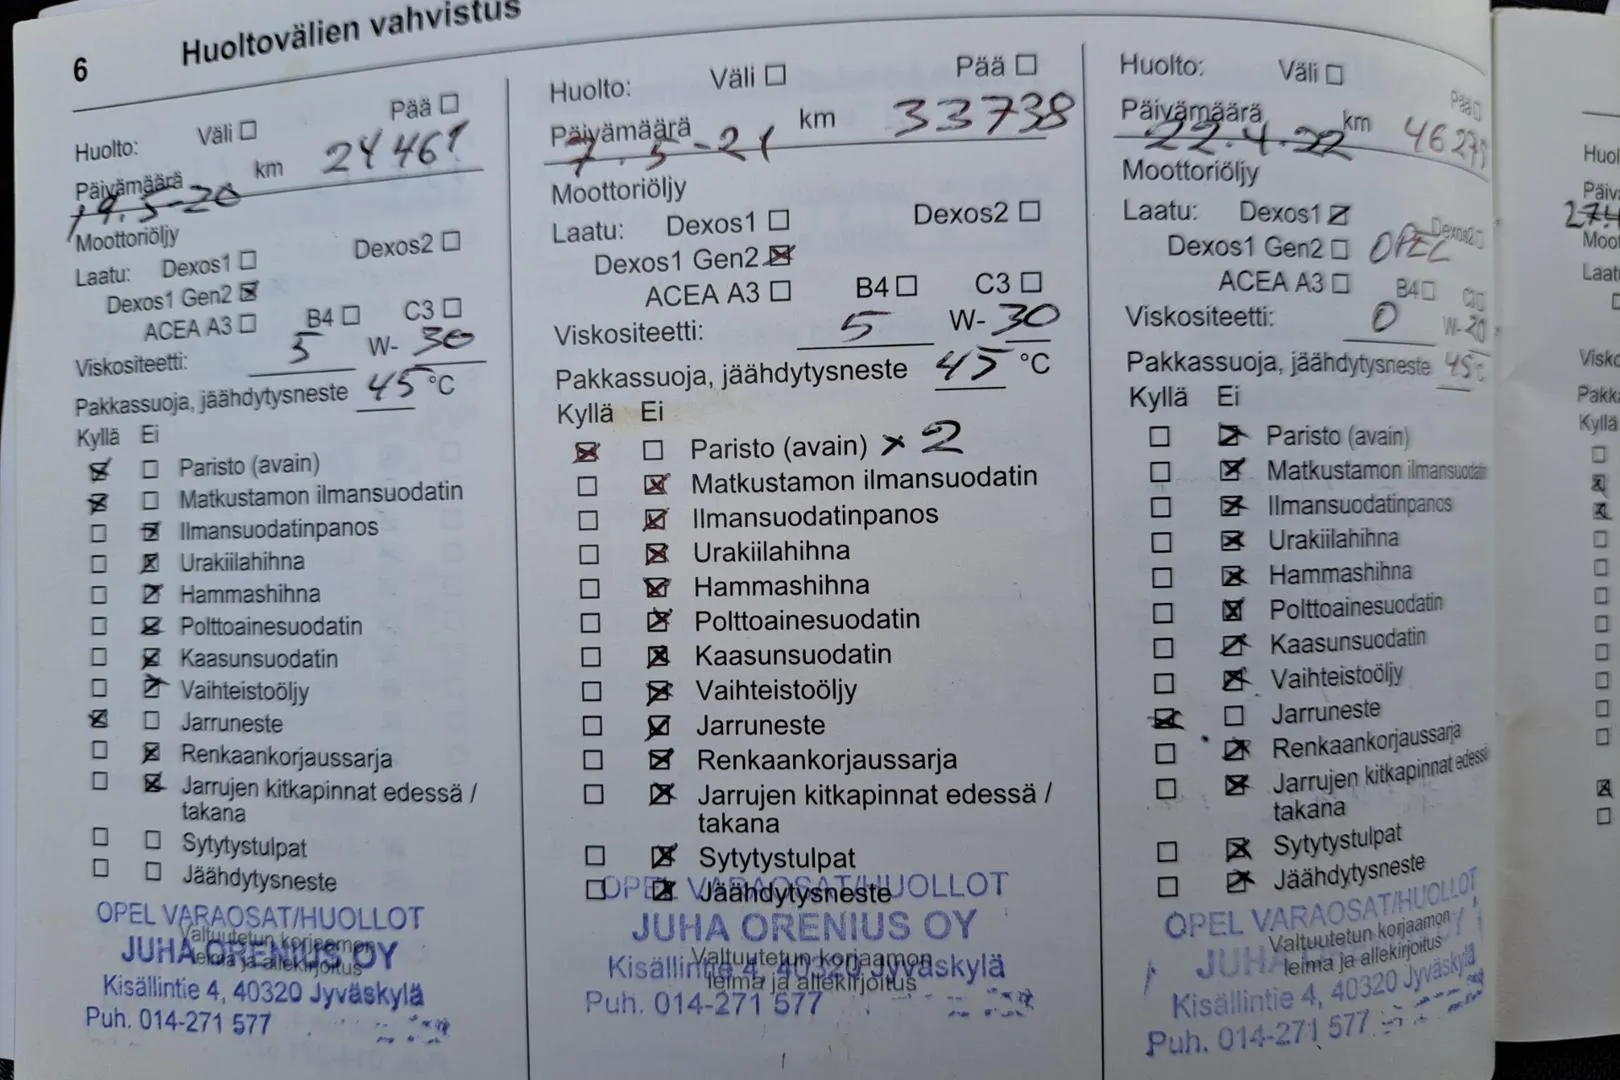 6 Huoltovälien vahvistus
Huolto: Väli Pää
Päivämäärä 19.5-20 km 24461
Moottoriöljy
Laatu: Dexos1 Dexos2
Dexos1 Gen2
ACEA A3 B4 C3
Viskositeetti: 5 W- 30
Pakkassuoja, jäähdytysneste 45 °C
Kyllä Ei
Paristo (avain)
Matkustamon ilmansuodatin
Ilmansuodatinpanos
Urakiilahihna
Hammashihna
Polttoainesuodatin
Kaasunsuodatin
Vaihteistoöljy
Jarruneste
Renkaankorjaussarja
Jarrujen kitkapinnat edessä /
takana
Sytytystulpat
Jäähdytysneste
OPEL VARAOSAT/HUOLLOT
Valtuutetun korjaamon
JUHA ORENIUS OY
leima ja allekirjoitus
Kisällintie 4, 40320 Jyväskylä
Puh. 014-271 577
Huolto: Väli Pää
Päivämäärä 7.5-21 km 33738
Moottoriöljy
Laatu: Dexos1 Dexos2
Dexos1 Gen2
ACEA A3 B4 C3
Viskositeetti: 5 W- 30
Pakkassuoja, jäähdytysneste 45 °C
Kyllä Ei
Paristo (avain) x 2
Matkustamon ilmansuodatin
Ilmansuodatinpanos
Urakiilahihna
Hammashihna
Polttoainesuodatin
Kaasunsuodatin
Vaihteistoöljy
Jarruneste
Renkaankorjaussarja
Jarrujen kitkapinnat edessä /
takana
Sytytystulpat
Jäähdytysneste
OPEL VARAOSAT/HUOLLOT
JUHA ORENIUS OY
Valtuutetun korjaamon
Kisällintie 4, 40320 Jyväskylä
leima ja allekirjoitus
Puh. 014-271 577
Huolto: Väli Pää
Päivämäärä 22.4.22 km
Moottoriöljy
Laatu: Dexos1 Dexos2
Dexos1 Gen2 OPEL
ACEA A3 B4 C3
Viskositeetti: 0 W- 20
Pakkassuoja, jäähdytysneste 45 °C
Kyllä Ei
Paristo (avain)
Matkustamon ilmansuodatin
Ilmansuodatinpanos
Urakiilahihna
Hammashihna
Polttoainesuodatin
Kaasunsuodatin
Vaihteistoöljy
Jarruneste
Renkaankorjaussarja
Jarrujen kitkapinnat edessä
takana
Sytytystulpat
Jäähdytysneste
OPEL VARAOSAT/HUOLLOT
Valtuutetun korjaamon
JUHA
leima ja allekirjoitus
Kisällintie 4, 40320 Jyväskylä
Puh. 014-271 577
Kyllä